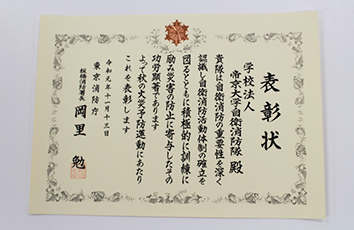 表彰状
学校法人
帝京大学自衛消防隊 殿
貴隊は自衛消防の重要性を深く
認識し自衛消防活動体制の確立を
図るとともに積極的に訓練に
励み災害の防止に寄与したその
功労顕著であります
よって秋の火災予防運動にあたり
これを表彰します
令和元年十一月十三日
東京消防庁
板橋消防署長 岡里 勉